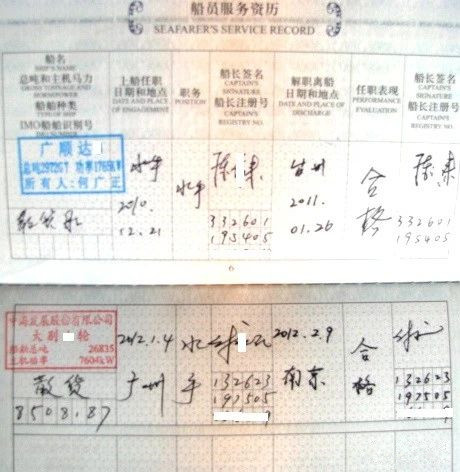 船员服务资历
SEAFARER'S SERVICE RECORD
船名
SHIP'S NAME
总吨和主机马力
GROSS TONNAGE AND HORSEPOWER
船舶种类
TYPE OF SHIP
IMO船舶识别号
IMO NUMBER
上船任职
日期和地点
DATE AND PLACE
OF ENGAGEMENT
职务
POSITION
船长签名
CAPTAIN'S
SIGNATURE
船长注册号
CAPTAIN'S
REGISTRY NO.
解职离船
日期和地点
DATE AND PLACE OF
DISCHARGE
任职表现
PERFORMANCE
EVALUATION
船长签名
CAPTAIN'S
SIGNATURE
船长注册号
CAPTAIN'S
REGISTRY NO.
广顺达
总吨29725T 功率1765KW
所有人：何广正
散货船
2010.
12.21
水手
332601
195405
台州
2011.
01.26
合格
332601
195405
6
中海发展股份有限公司
轮
船舶总吨 26835
主机功率 7604kW
散货
8508.87
2012.1.4
广州
水手
132623
197505
2012.2.9
南京
合格
132623
197505